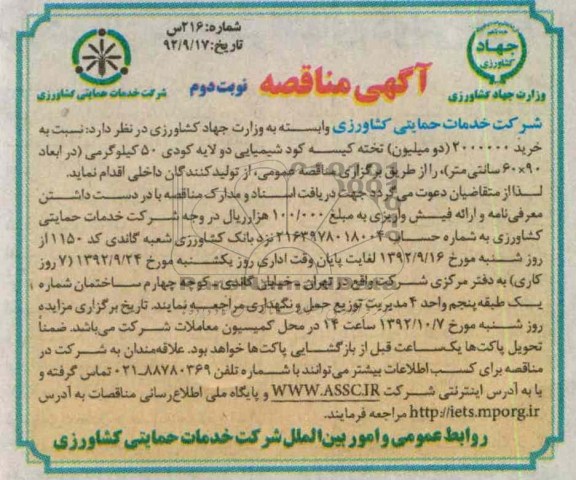 شماره: ۲۱۶س
تاریخ: ۹۲/۹/۱۷
جهاد
کشاورزی
وزارت جهاد کشاورزی
آگهی مناقصه
نوبت دوم
شرکت خدمات حمایتی کشاورزی
شرکت خدمات حمایتی کشاورزی وابسته به وزارت جهاد کشاورزی در نظر دارد: نسبت به
خرید ۲۰۰۰۰۰۰ (دو میلیون) تخته کیسه کود شیمیایی دو لایه کودی ۵۰ کیلوگرمی (در ابعاد
۶۰×۹۰ سانتی‌متر)، را از طریق برگزاری مناقصه عمومی، از تولیدکنندگان داخلی اقدام نماید.
لذا از متقاضیان دعوت می‌گردد جهت دریافت اسناد و مدارک مناقصه با در دست داشتن
معرفی‌نامه و ارائه فیش واریزی به مبلغ ۱۰۰/۰۰۰ هزارریال در وجه شرکت خدمات حمایتی
کشاورزی به شماره حساب ۲۱۶۳۹۷۸۰۱۸۰۰۴ نزد بانک کشاورزی شعبه گاندی کد ۱۱۵۰ از
روز شنبه مورخ ۱۳۹۲/۹/۱۶ لغایت پایان وقت اداری روز یکشنبه مورخ ۱۳۹۲/۹/۲۴ (۷ روز
کاری) به دفتر مرکزی شرکت واقع در تهران - خیابان گاندی - کوچه چهارم ساختمان شماره
یک طبقه پنجم واحد ۴ مدیریت توزیع حمل و نگهداری مراجعه نمایند. تاریخ برگزاری مزایده
روز شنبه مورخ ۱۳۹۲/۱۰/۷ ساعت ۱۴ در محل کمیسیون معاملات شرکت می‌باشد. ضمناً
تحویل پاکت‌ها یکساعت قبل از بازگشایی پاکت‌ها خواهد بود. علاقه‌مندان به شرکت در
مناقصه برای کسب اطلاعات بیشتر می‌توانند با شماره تلفن ۸۸۷۸۰۳۶۹-۰۲۱ تماس گرفته و
یا به آدرس اینترنتی شرکت WWW.ASSC.IR و پایگاه ملی اطلاع‌رسانی مناقصات به آدرس
http://iets.mporg.ir مراجعه فرمایند.
روابط عمومی و امور بین‌الملل شرکت خدمات حمایتی کشاورزی